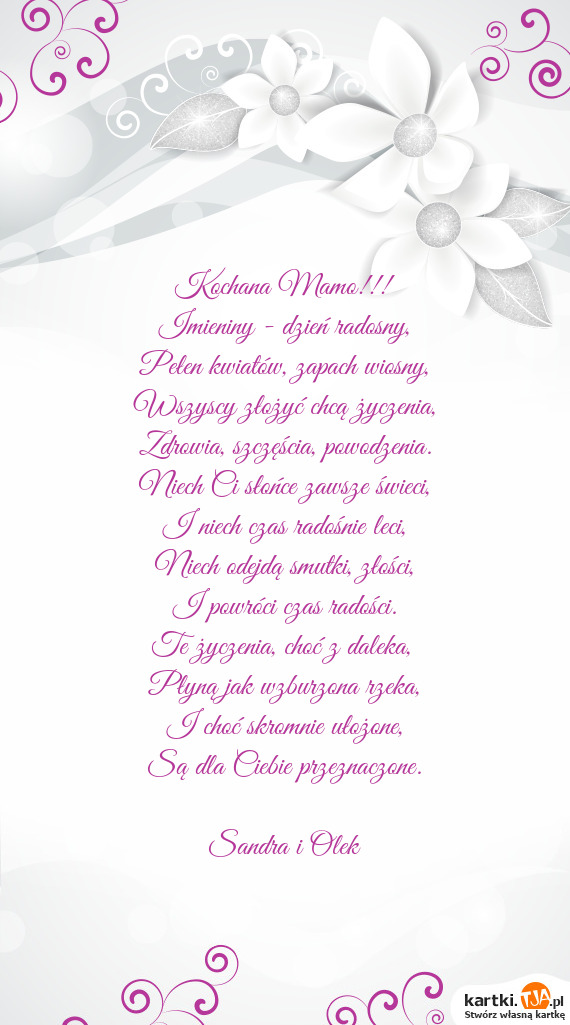 Kochana Mamo!!!
Imieniny - dzień radosny,
Pełen kwiatów, zapach wiosny,
Wszyscy złożyć chcą życzenia,
Zdrowia, szczęścia, powodzenia.
Niech Ci słońce zawsze świeci,
I niech czas radośnie leci,
Niech odejdą smutki, złości,
I powróci czas radości.
Te życzenia, choć z daleka,
Płyną jak wzburzona rzeka,
I choć skromnie ułożone,
Są dla Ciebie przeznaczone.
Sandra i Olek
kartki.TJA.pl
Stwórz własną kartkę